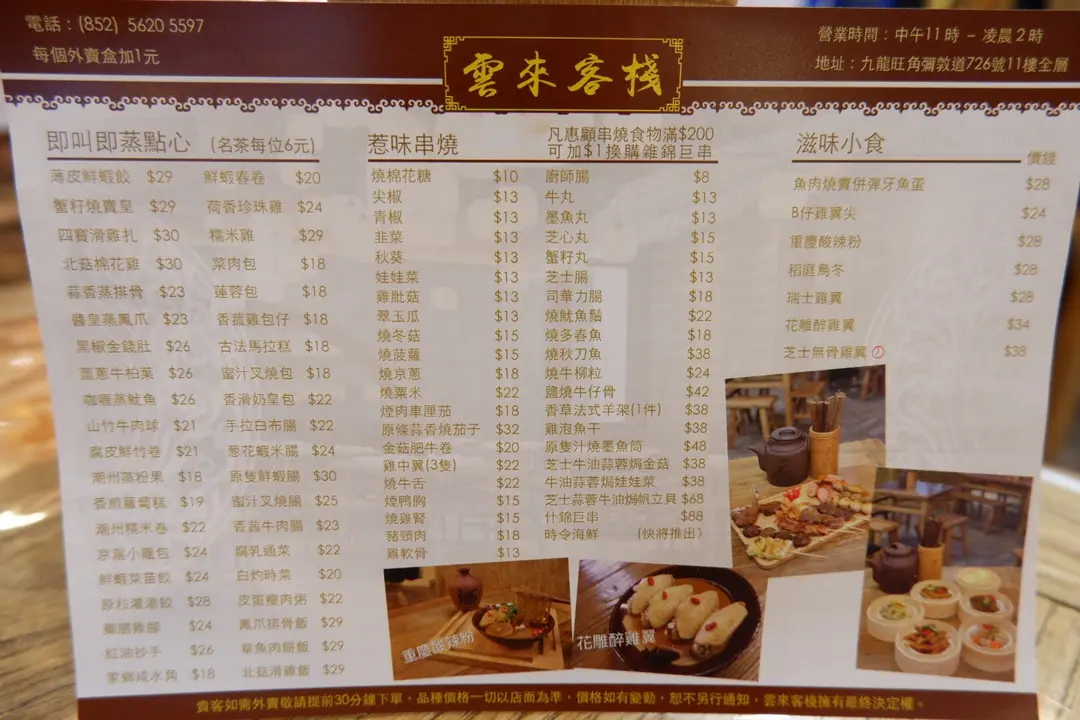 電話：(852) 5620 5597
每個外賣盒加1元
雲來客棧
營業時間：中午11時 – 凌晨2時
地址：九龍旺角彌敦道726號11樓全層
即叫即蒸點心 (名茶每位6元)
薄皮鮮蝦餃 $29 鮮蝦春卷 $20
蟹籽燒賣皇 $29 荷香珍珠雞 $24
四寶滑雞扎 $30 糯米雞 $29
北菇棉花雞 $30 菜肉包 $18
蒜香蒸排骨 $23 蓮蓉包 $18
醬皇蒸鳳爪 $23 香菰雞包仔 $18
黑椒金錢肚 $26 古法馬拉糕 $18
薑蔥牛柏葉 $26 蜜汁叉燒包 $18
咖喱蒸魷魚 $26 香滑奶皇包 $22
山竹牛肉球 $21 手拉白布腸 $22
腐皮鮮竹卷 $21 蔥花蝦米腸 $24
潮州蒸粉果 $18 原隻鮮蝦腸 $30
香煎蘿蔔糕 $19 蜜汁叉燒腸 $25
潮州糯米卷 $22 香茜牛肉腸 $23
京滬小籠包 $24 腐乳通菜 $22
鮮蝦菜苗餃 $24 白灼時菜 $20
原粒灌湯餃 $28 皮蛋瘦肉粥 $22
$24 鳳爪排骨飯 $29
紅油抄手 $26 章魚肉餅飯 $29
家鄉咸水角 $18 北菇滑雞飯 $29
惹味串燒
凡惠顧串燒食物滿$200
可加$1換購雜錦巨串
燒棉花糖 $10 廚師腸 $8
尖椒 $13 牛丸 $13
青椒 $13 墨魚丸 $13
韭菜 $13 芝心丸 $15
秋葵 $13 蟹籽丸 $15
娃娃菜 $13 芝士腸 $13
雞肶菇 $13 司華力腸 $18
翠玉瓜 $13 燒魷魚鬚 $22
燒冬菇 $15 燒多春魚 $18
燒菠蘿 $15 燒秋刀魚 $38
燒京蔥 $18 燒牛柳粒 $24
燒粟米 $22 鹽燒牛仔骨 $42
煙肉車厘茄 $18 香草法式羊架(1件) $38
原條蒜香燒茄子 $32 雞泡魚干 $38
金菇肥牛卷 $20 原隻汁燒墨魚筒 $48
雞中翼(3隻) $22 芝士牛油蒜蓉焗金菇 $38
燒牛舌 $22 牛油蒜蓉焗娃娃菜 $38
煙鴨胸 $15 芝士蒜蓉牛油焗帆立貝 $68
燒雞腎 $15 什錦巨串 $88
豬頸肉 $18 時令海鮮 (快將推出)
雞軟骨 $13
滋味小食
價錢
魚肉燒賣併彈牙魚蛋 $28
B仔雞翼尖 $24
重慶酸辣粉 $28
稻庭烏冬 $28
瑞士雞翼 $28
花雕醉雞翼 $34
芝士無骨雞翼 $38
重慶酸辣粉
花雕醉雞翼
貴客如需外賣敬請提前30分鐘下單，品種價格一切以店面為準，價格如有變動，恕不另行通知，雲來客棧擁有最終決定權。